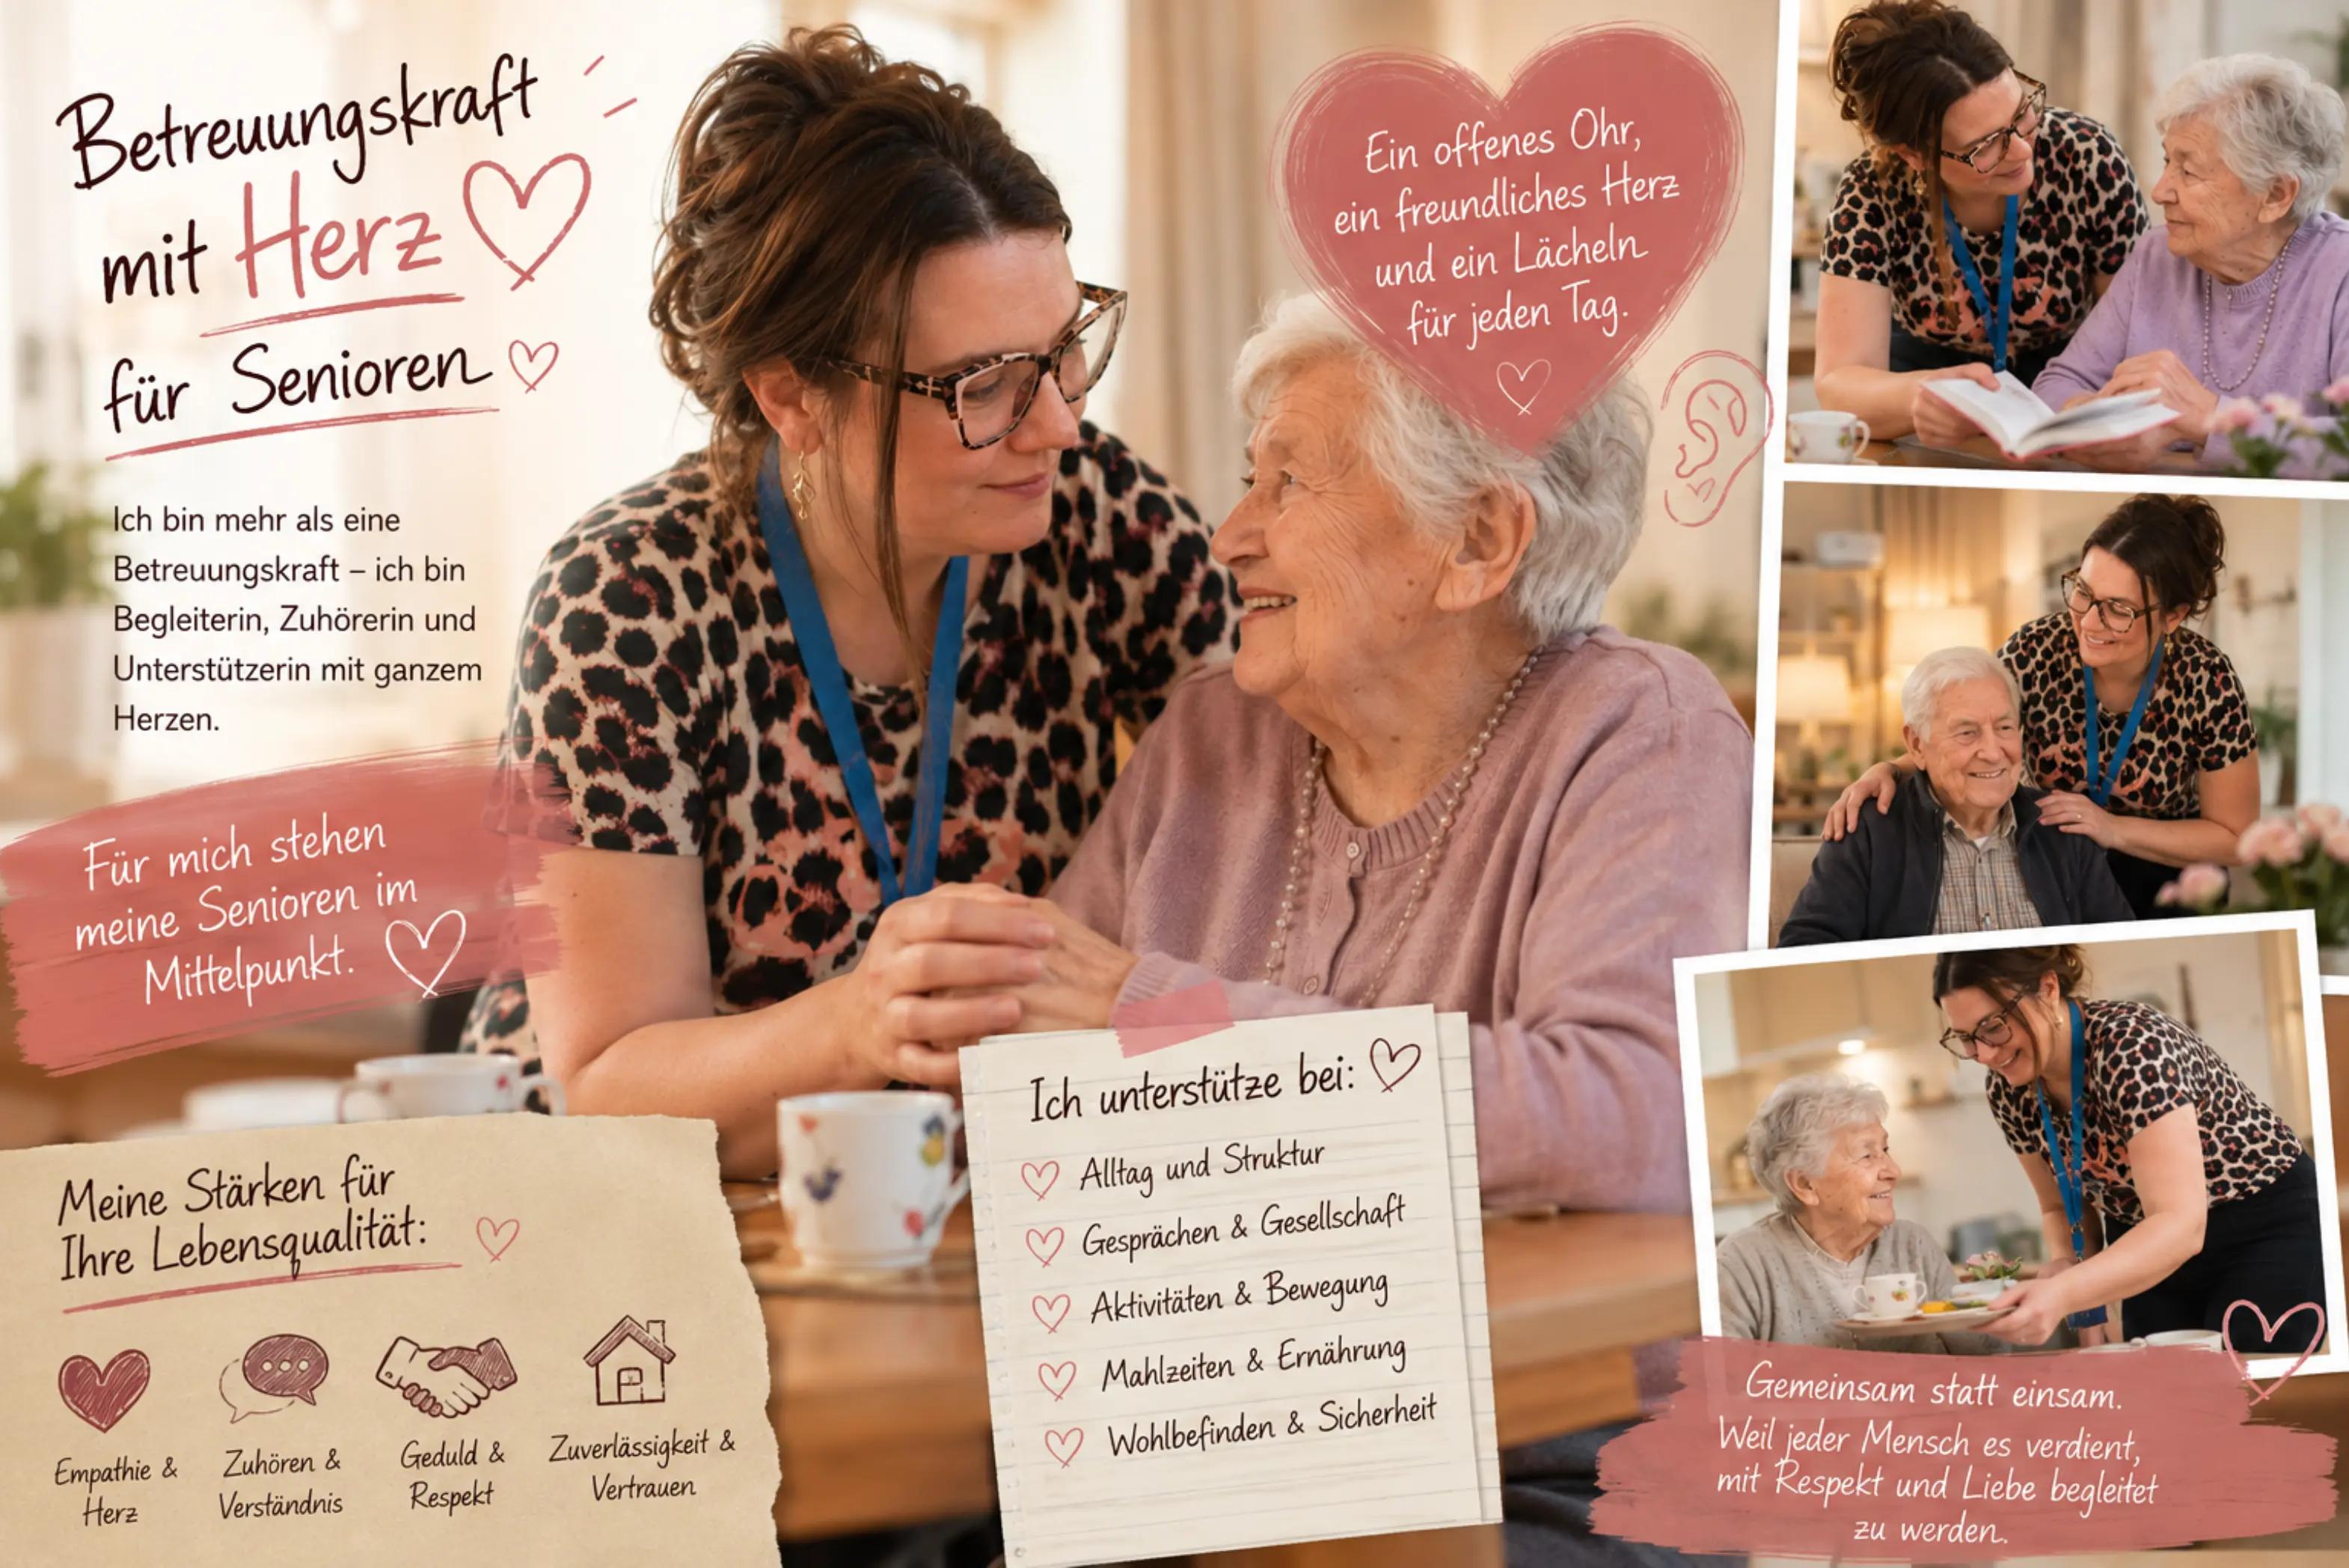 Betreuungskraft
mit Herz
für Senioren
Ich bin mehr als eine
Betreuungskraft – ich bin
Begleiterin, Zuhörerin und
Unterstützerin mit ganzem
Herzen.
Für mich stehen
meine Senioren im
Mittelpunkt.
Ein offenes Ohr,
ein freundliches Herz
und ein Lächeln
für jeden Tag.
Meine Stärken für
Ihre Lebensqualität:
Empathie &
Herz
Zuhören &
Verständnis
Geduld &
Respekt
Zuverlässigkeit &
Vertrauen
Ich unterstütze bei:
Alltag und Struktur
Gesprächen & Gesellschaft
Aktivitäten & Bewegung
Mahlzeiten & Ernährung
Wohlbefinden & Sicherheit
Gemeinsam statt einsam.
Weil jeder Mensch es verdient,
mit Respekt und Liebe begleitet
zu werden.